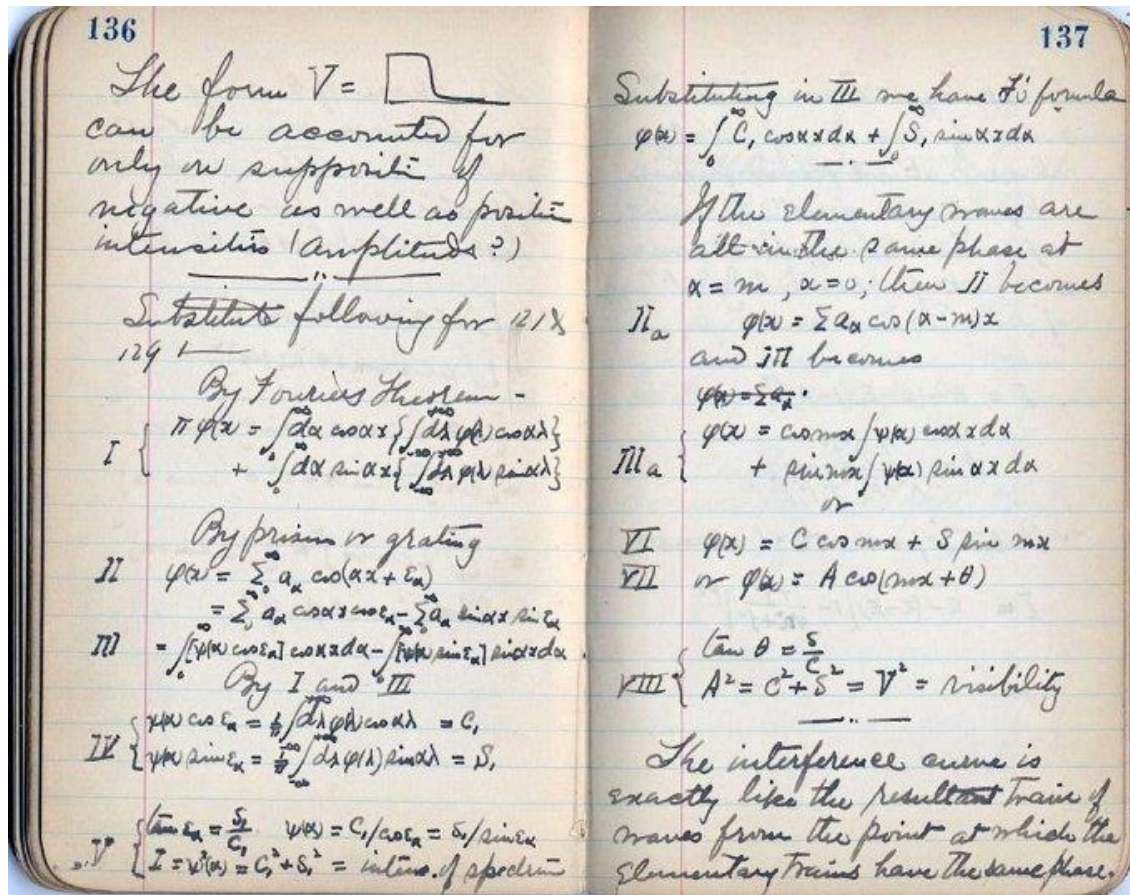 136
The form V =
can be accounted for
only on suppositi of
negative as well as positive
intensities (Amplituds?)
Substitute following for 121 &
129
By Fouriers Theorem -
I { π φ(x) = ∫₀^∞ dα cos αx {∫₋∞^+∞ dλ φ(λ) cos αλ}
+ ∫₀^∞ dα sin αx {∫₋∞^+∞ dλ φ(λ) sin αλ}
By prism or grating
II φ(x) = Σ₀^∞ a_α cos(αx + ε_α)
= Σ₀^∞ a_α cos αx cos ε_α - Σ₀^∞ a_α sin αx sin ε_α
III = ∫₀^∞ [ψ(α) cos ε_α] cos αx dα - ∫₀^∞ [ψ(α) sin ε_α] sin αx dα
By I and III
IV { ψ(α) cos ε_α = 1/π ∫₋∞^+∞ dλ φ(λ) cos αλ = C₁
ψ(α) sin ε_α = 1/π ∫₋∞^+∞ dλ φ(λ) sin αλ = S₁
V { tan ε_α = S₁/C₁ ψ(α) = C₁/cos ε_α = S₁/sin ε_α
I = ψ²(α) = C₁² + S₁² = intens. of spectrum
137
Substituting in III we have formula
φ(x) = ∫₀^∞ C₁ cos αx dα + ∫₀^∞ S₁ sin αx dα
If the elementary waves are
all in the same phase at
α = m, x = 0; then II becomes
IIa φ(x) = Σ a_α cos(α - m)x
and III becomes
φ(x) = Σ a_α
IIIa { φ(x) = cos mx ∫ψ(α) cos αx dα
+ sin mx ∫ψ(α) sin αx dα
or
VI φ(x) = C cos mx + S sin mx
VII or φ(x) = A cos(mx + θ)
VIII { tan θ = S/C
A² = C² + S² = V² = visibility
The interference curve is
exactly like the resultant train of
waves from the point at which the
elementary trains have the same phase.